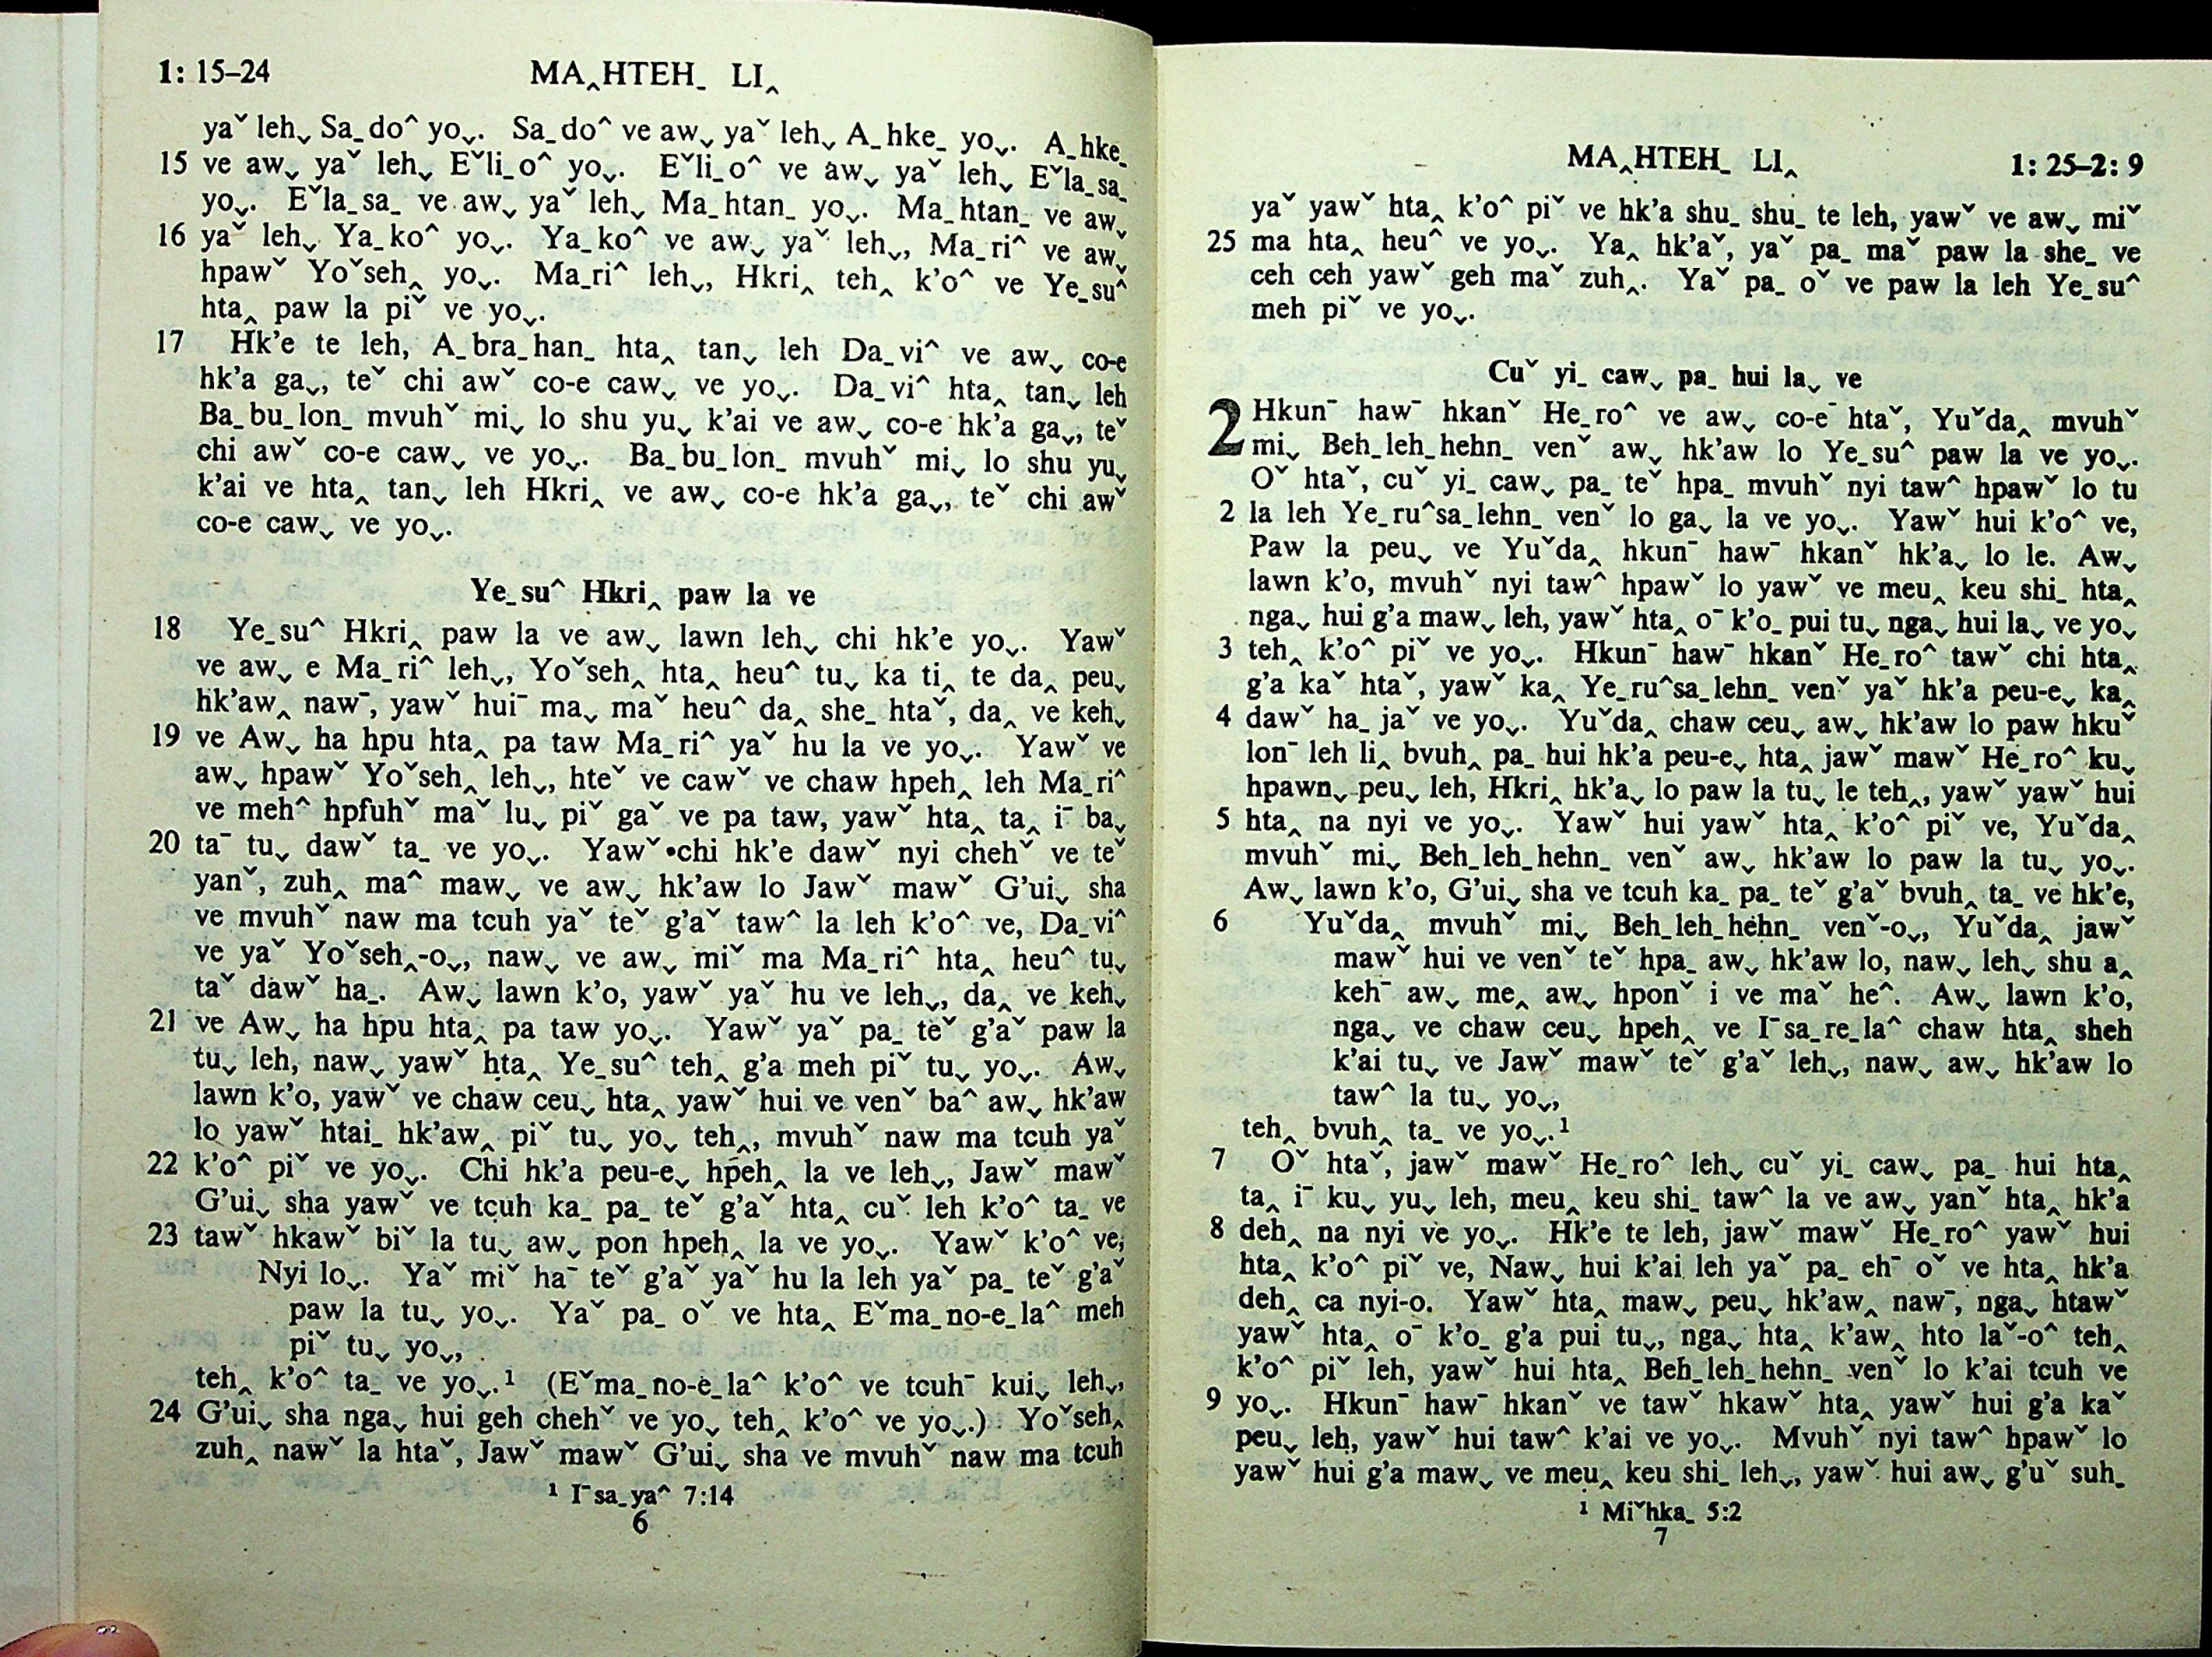 1: 15–24
MA‸HTEH_ LI‸
yaˇ lehˬ Sa_do^ yoˬ. Sa_do^ ve awˬ yaˇ lehˬ A_hke_ yoˬ. A_hke_
15 ve awˬ yaˇ lehˬ Eˇli_o^ yoˬ. Eˇli_o^ ve awˬ yaˇ lehˬ Eˇla_sa_
yoˬ. Eˇla_sa_ ve awˬ yaˇ lehˬ Ma_htan_ yoˬ. Ma_htan_ ve awˬ
16 yaˇ lehˬ Ya_ko^ yoˬ. Ya_ko^ ve awˬ yaˇ lehˬ, Ma_ri^ ve awˬ
hpawˇ Yoˇseh‸ yoˬ. Ma_ri^ lehˬ, Hkri‸ teh‸ k'o^ ve Ye_su^
hta‸ paw la piˇ ve yoˬ.
17 Hk'e te leh, A_bra_han_ hta‸ tanˬ leh Da_vi^ ve awˬ co-e
hk'a gaˬ, teˇ chi awˇ co-e cawˬ ve yoˬ. Da_vi^ hta‸ tanˬ leh
Ba_bu_lon_ mvuhˇ miˬ lo shu yuˬ k'ai ve awˬ co-e hk'a gaˬ, teˇ
chi awˇ co-e cawˬ ve yoˬ. Ba_bu_lon_ mvuhˇ miˬ lo shu yuˬ
k'ai ve hta‸ tanˬ leh Hkri‸ ve awˬ co-e hk'a gaˬ, teˇ chi awˇ
co-e cawˬ ve yoˬ.
Ye_su^ Hkri‸ paw la ve
18 Ye_su^ Hkri‸ paw la ve awˬ lawn lehˬ chi hk'e yoˬ. Yawˇ
ve awˬ e Ma_ri^ lehˬ, Yoˇseh‸ hta‸ heu^ tuˬ ka ti‸ te da‸ peuˬ
hk'aw‸ naw¯, yawˇ hui¯ maˬ maˇ heu^ da‸ she_ htaˇ, da‸ ve kehˬ
19 ve Awˬ ha hpu hta‸ pa taw Ma_ri^ yaˇ hu la ve yoˬ. Yawˇ ve
awˬ hpawˇ Yoˇseh‸ lehˬ, hteˇ ve cawˇ ve chaw hpeh‸ leh Ma_ri^
ve meh^ hpfuhˇ maˇ luˬ piˇ gaˇ ve pa taw, yawˇ hta‸ ta‸ i¯ baˬ
20 ta¯ tuˬ dawˇ ta_ ve yoˬ. Yawˇ chi hk'e dawˇ nyi chehˇ ve teˇ
yanˇ, zuh‸ ma^ mawˬ ve awˬ hk'aw lo Jawˇ mawˇ G'uiˬ sha
ve mvuhˇ naw ma tcuh yaˇ teˇ g'aˇ taw^ la leh k'o^ ve, Da_vi^
ve yaˇ Yoˇseh‸-oˬ, nawˬ ve awˬ miˇ ma Ma_ri^ hta‸ heu^ tuˬ
taˇ dawˇ ha_. Awˬ lawn k'o, yawˇ yaˇ hu ve lehˬ, da‸ ve kehˬ
21 ve Awˬ ha hpu hta‸ pa taw yoˬ. Yawˇ yaˇ pa_ teˇ g'aˇ paw la
tuˬ leh, nawˬ yawˇ hta‸ Ye_su^ teh‸ g'a meh piˇ tuˬ yoˬ. Awˬ
lawn k'o, yawˇ ve chaw ceuˬ hta‸ yawˇ hui ve venˇ ba^ awˬ hk'aw
lo yawˇ htai_ hk'aw‸ piˇ tuˬ yoˬ teh‸, mvuhˇ naw ma tcuh yaˇ
22 k'o^ piˇ ve yoˬ. Chi hk'a peu-eˬ hpeh‸ la ve lehˬ, Jawˇ mawˇ
G'uiˬ sha yawˇ ve tcuh ka_ pa_ teˇ g'aˇ hta‸ cuˇ leh k'o^ ta_ ve
23 tawˇ hkawˇ biˇ la tuˬ awˬ pon hpeh‸ la ve yoˬ. Yawˇ k'o^ ve,
Nyi loˬ. Yaˇ miˇ ha¯ teˇ g'aˇ yaˇ hu la leh yaˇ pa_ teˇ g'aˇ
paw la tuˬ yoˬ. Yaˇ pa_ oˇ ve hta‸ Eˇma_no-e_la^ meh
piˇ tuˬ yoˬ,
teh‸ k'o^ ta_ ve yoˬ.¹ (Eˇma_no-e_la^ k'o^ ve tcuh¯ kuiˬ lehˬ,
24 G'uiˬ sha ngaˬ hui geh chehˇ ve yoˬ teh‸ k'o^ ve yoˬ.) Yoˇseh‸
zuh‸ nawˇ la htaˇ, Jawˇ mawˇ G'uiˬ sha ve mvuhˇ naw ma tcuh
¹ I¯sa_ya^ 7:14
6
MA‸HTEH_ LI‸
1: 25–2: 9
yaˇ yawˇ hta‸ k'o^ piˇ ve hk'a shu_ shu_ te leh, yawˇ ve awˬ miˇ
25 ma hta‸ heu^ ve yoˬ. Ya‸ hk'aˇ, yaˇ pa_ maˇ paw la she_ ve
ceh ceh yawˇ geh maˇ zuh‸. Yaˇ pa_ oˇ ve paw la leh Ye_su^
meh piˇ ve yoˬ.
Cuˇ yi_ cawˬ pa_ hui laˬ ve
2 Hkun¯ haw¯ hkanˇ He_ro^ ve awˬ co-e¯ htaˇ, Yuˇda‸ mvuhˇ
miˬ Beh_leh_hehn_ venˇ awˬ hk'aw lo Ye_su^ paw la ve yoˬ.
Oˇ htaˇ, cuˇ yi_ cawˬ pa_ teˇ hpa_ mvuhˇ nyi taw^ hpawˇ lo tu
2 la leh Ye_ru^sa_lehn_ venˇ lo gaˬ la ve yoˬ. Yawˇ hui k'o^ ve,
Paw la peuˬ ve Yuˇda‸ hkun¯ haw¯ hkanˇ hk'aˬ lo le. Awˬ
lawn k'o, mvuhˇ nyi taw^ hpawˇ lo yawˇ ve meu‸ keu shi_ hta‸
ngaˬ hui g'a mawˬ leh, yawˇ hta‸ o¯ k'o_ pui tuˬ ngaˬ hui laˬ ve yoˬ
3 teh‸ k'o^ piˇ ve yoˬ. Hkun¯ haw¯ hkanˇ He_ro^ tawˇ chi hta‸
g'a kaˇ htaˇ, yawˇ ka‸ Ye_ru^sa_lehn_ venˇ yaˇ hk'a peu-eˬ ka‸
4 dawˇ ha_ jaˇ ve yoˬ. Yuˇda‸ chaw ceuˬ awˬ hk'aw lo paw hkuˇ
lon¯ leh li‸ bvuh‸ pa_ hui hk'a peu-eˬ hta‸ jawˇ mawˇ He_ro^ kuˬ
hpawnˬ peuˬ leh, Hkri‸ hk'aˬ lo paw la tuˬ le teh‸, yawˇ yawˇ hui
5 hta‸ na nyi ve yoˬ. Yawˇ hui yawˇ hta‸ k'o^ piˇ ve, Yuˇda‸
mvuhˇ miˬ Beh_leh_hehn_ venˇ awˬ hk'aw lo paw la tuˬ yoˬ.
Awˬ lawn k'o, G'uiˬ sha ve tcuh ka_ pa_ teˇ g'aˇ bvuh‸ ta_ ve hk'e,
6 Yuˇda‸ mvuhˇ miˬ Beh_leh_hehn_ venˇ-oˬ, Yuˇda‸ jawˇ
mawˇ hui ve venˇ teˇ hpa_ awˬ hk'aw lo, nawˬ lehˬ shu a‸
keh¯ awˬ me‸ awˬ hponˇ i ve maˇ he^. Awˬ lawn k'o,
ngaˬ ve chaw ceuˬ hpeh‸ ve I¯sa_re_la^ chaw hta‸ sheh
k'ai tuˬ ve Jawˇ mawˇ teˇ g'aˇ lehˬ, nawˬ awˬ hk'aw lo
taw^ la tuˬ yoˬ,
teh‸ bvuh‸ ta_ ve yoˬ.¹
7 Oˇ htaˇ, jawˇ mawˇ He_ro^ lehˬ cuˇ yi_ cawˬ pa_ hui hta‸
ta‸ i¯ kuˬ yuˬ leh, meu‸ keu shi_ taw^ la ve awˬ yanˇ hta‸ hk'a
8 deh‸ na nyi ve yoˬ. Hk'e te leh, jawˇ mawˇ He_ro^ yawˇ hui
hta‸ k'o^ piˇ ve, Nawˬ hui k'ai leh yaˇ pa_ eh¯ oˇ ve hta‸ hk'a
deh‸ ca nyi-o. Yawˇ hta‸ mawˬ peuˬ hk'aw‸ naw¯, ngaˬ htawˇ
yawˇ hta‸ o¯ k'o_ g'a pui tuˬ, ngaˬ hta‸ k'aw‸ hto laˇ-o^ teh‸
k'o^ piˇ leh, yawˇ hui hta‸ Beh_leh_hehn_ venˇ lo k'ai tcuh ve
9 yoˬ. Hkun¯ haw¯ hkanˇ ve tawˇ hkawˇ hta‸ yawˇ hui g'a kaˇ
peuˬ leh, yawˇ hui taw^ k'ai ve yoˬ. Mvuhˇ nyi taw^ hpawˇ lo
yawˇ hui g'a mawˬ ve meu‸ keu shi_ lehˬ, yawˇ hui awˬ g'uˇ suh_
¹ Miˇhka_ 5:2
7